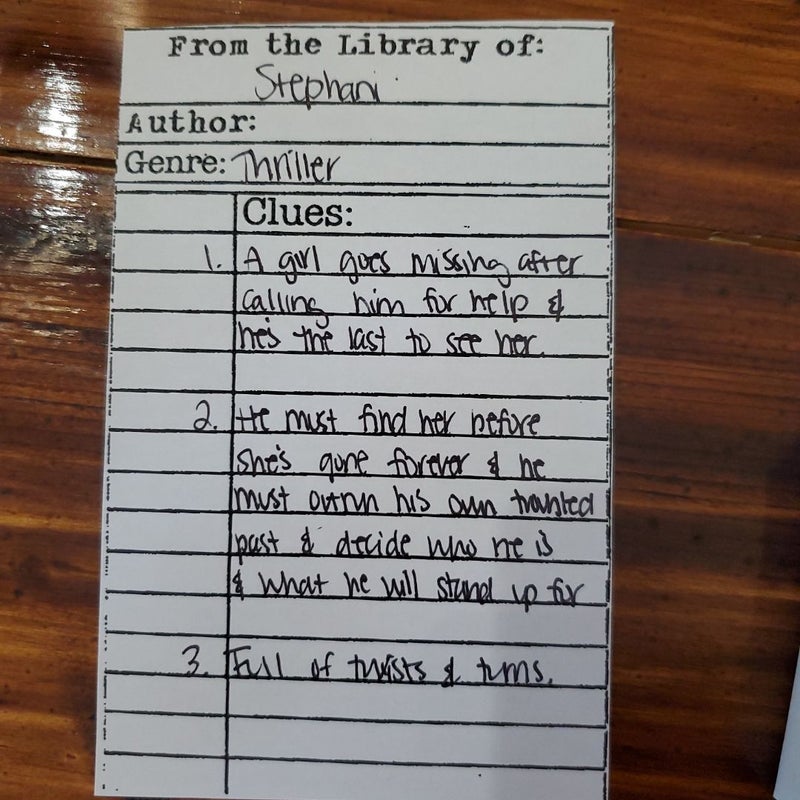 From the Library of:
Stephani
Author:
Genre: Thriller
Clues:
1. A girl goes missing after
calling him for help &
he's the last to see her.
2. He must find her before
she's gone forever & he
must outrun his own
past & decide who he is
& what he will stand up for
3. Full of twists & turns.